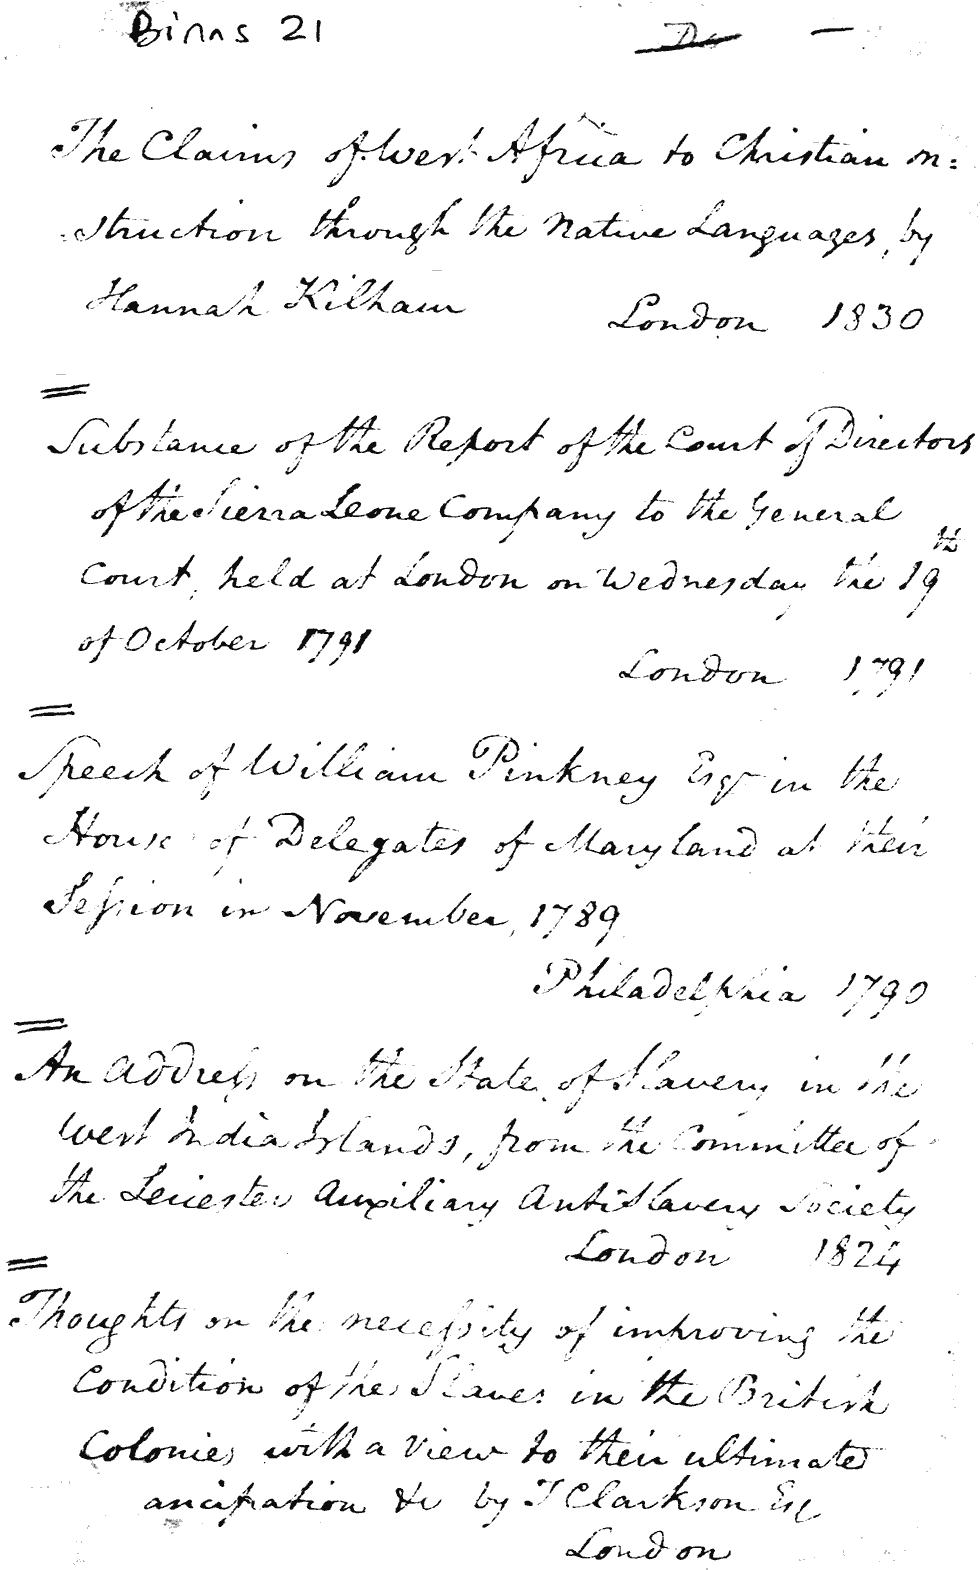 Binns 21
The Claims of West Africa to Christian in=
struction through the Native Languages, by
Hannah Kilham
London 1830
Substance of the Report of the Court of Directors
of the Sierra Leone Company to the General
Court, held at London on Wednesday the 19th
of October 1791
London 1791
Speech of William Pinkney Esqr in the
House of Delegates of Maryland at their
Session in November, 1789
Philadelphia 1790
An Address on the State of Slavery in the
West India Islands, from the Committee of
the Leicester Auxiliary Anti Slavery Society
London 1824
Thoughts on the necessity of improving the
Condition of the Slaves in the British
Colonies with a view to their ultimate
ancipation &c by T Clarkson Esq
London